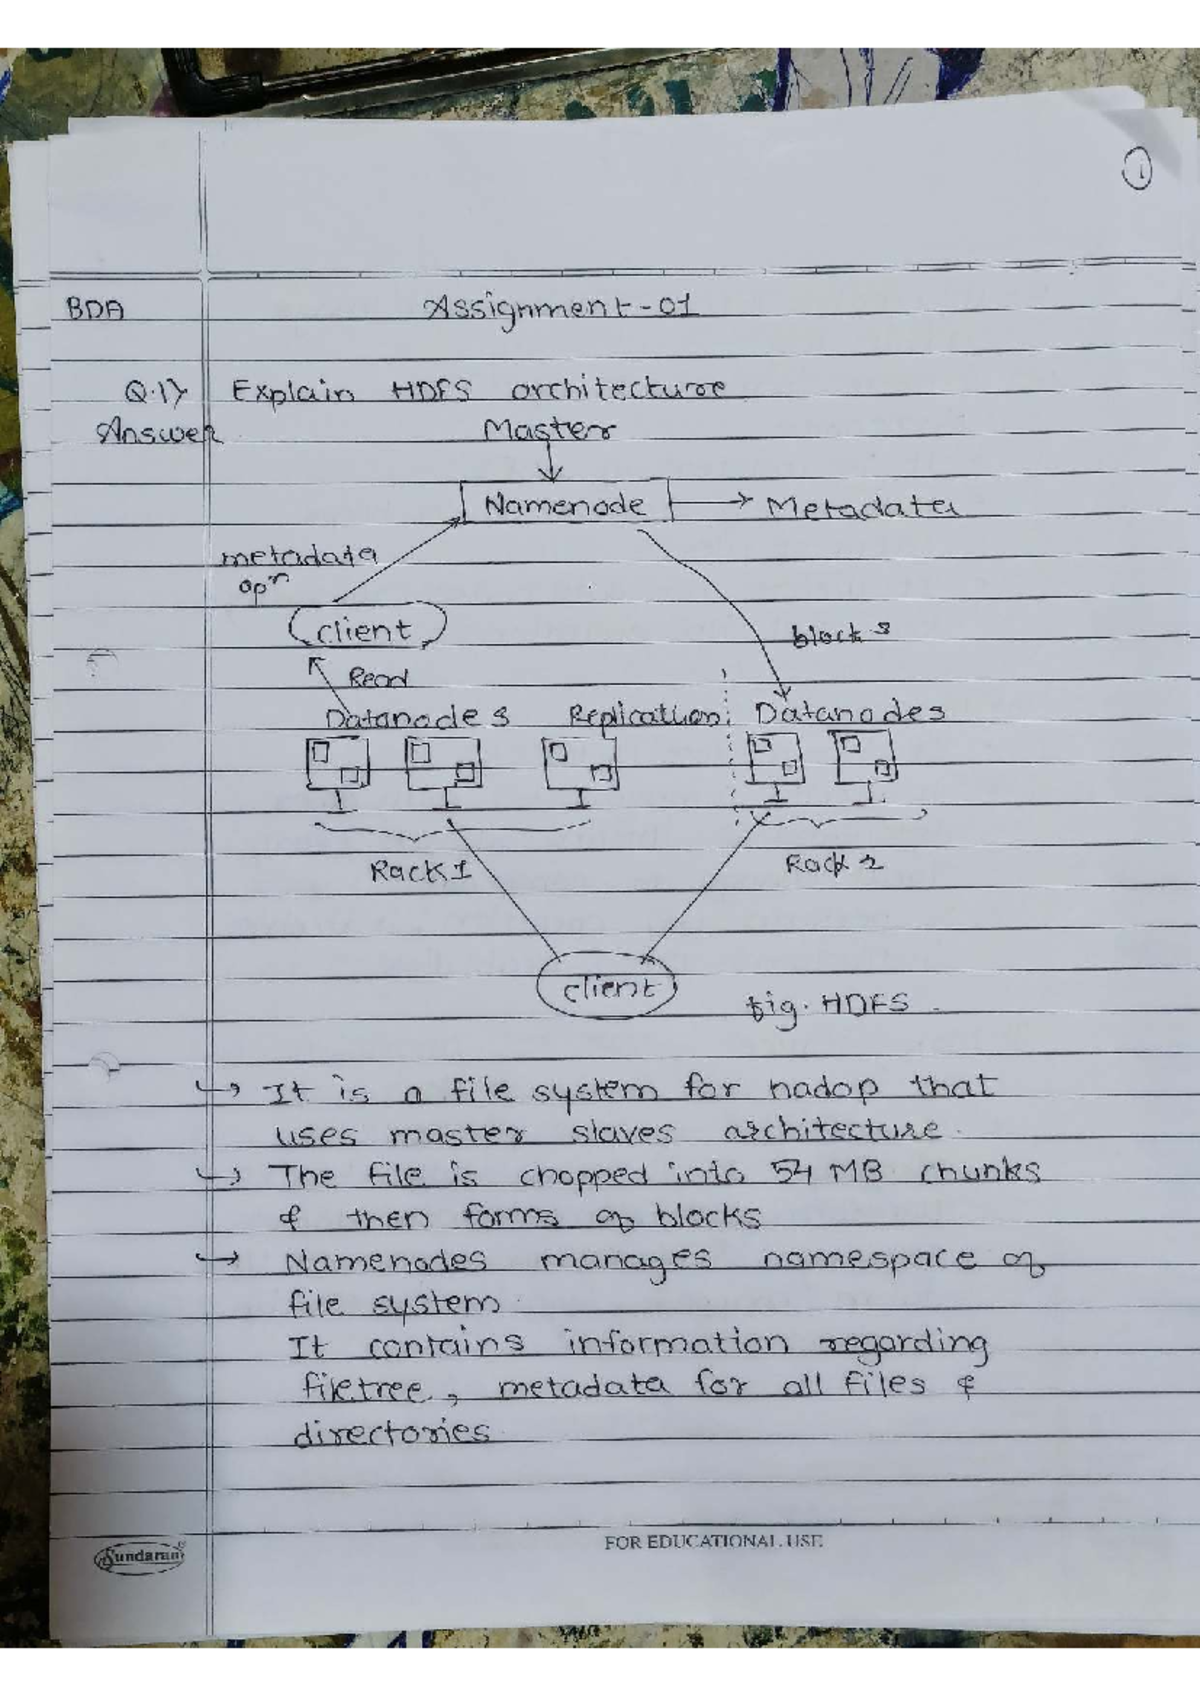 1
BDA Assignment-01
Q.1) Explain HDFS architecture
Answer Master
Namenode Metadata
metadata
opn
client
blocks
Read
Datanodes Replication Datanodes
Rack 1 Rack 2
client
fig. HDFS
It is a file system for hadop that
uses master slaves architecture.
The file is chopped into 54 MB chunks
& then forms of blocks
Namenodes manages namespace of
file system
It contains information regarding
filetree, metadata for all files &
directories
Sundaram
FOR EDUCATIONAL USE